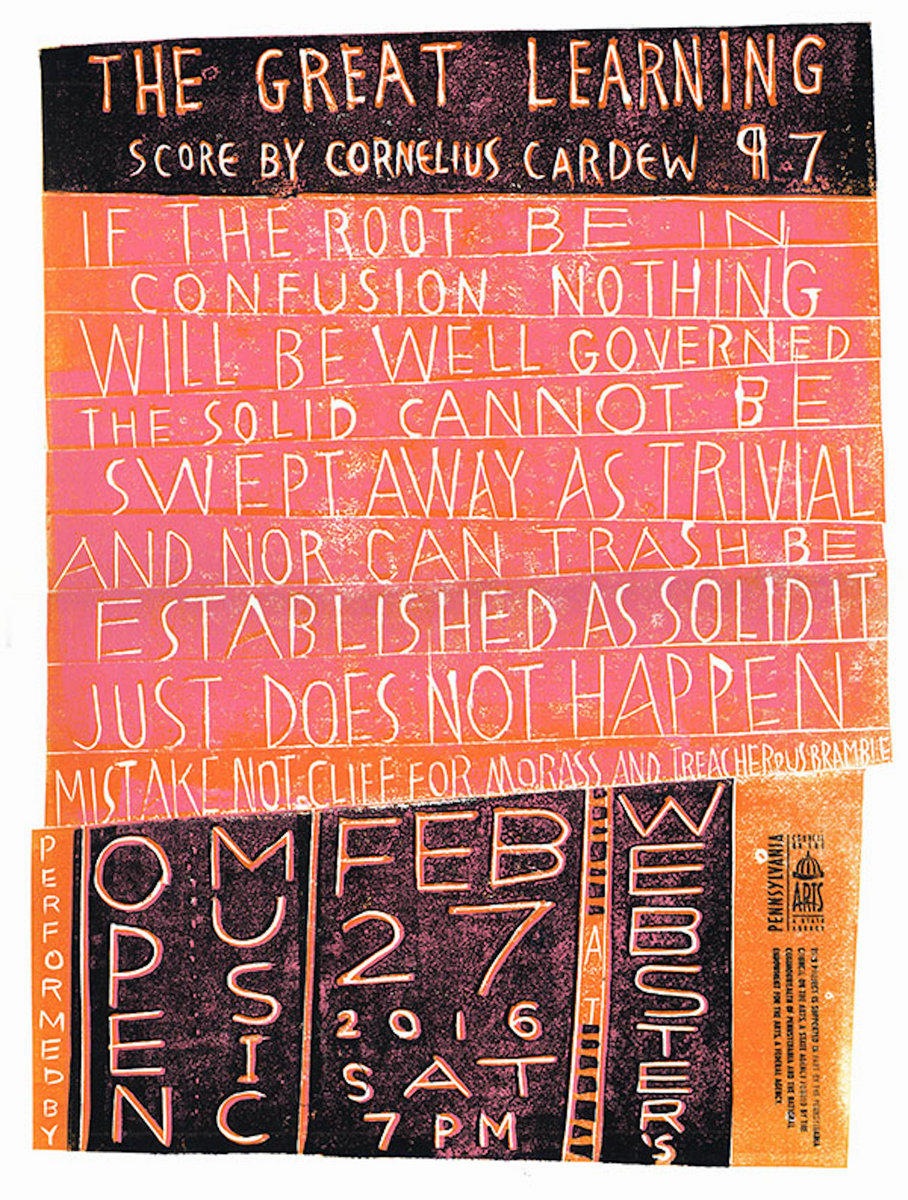 THE GREAT LEARNING
SCORE BY CORNELIUS CARDEW ¶ 7
IF THE ROOT BE IN
CONFUSION NOTHING
WILL BE WELL GOVERNED
THE SOLID CANNOT BE
SWEPT AWAY AS TRIVIAL
AND NOR CAN TRASH BE
ESTABLISHED AS SOLID IT
JUST DOES NOT HAPPEN
MISTAKE NOT CLIFF FOR MORASS AND TREACHEROUS BRAMBLE
PERFORMED BY
OPEN
MUSIC
FEB
27
2016
SAT
7 PM
AT
WEBSTER'S
PENNSYLVANIA
COUNCIL
ON THE
ARTS
A STATE
AGENCY
THIS PROJECT IS SUPPORTED IN PART BY THE PENNSYLVANIA
COUNCIL ON THE ARTS, A STATE AGENCY FUNDED BY THE
COMMONWEALTH OF PENNSYLVANIA AND THE NATIONAL
ENDOWMENT FOR THE ARTS, A FEDERAL AGENCY.